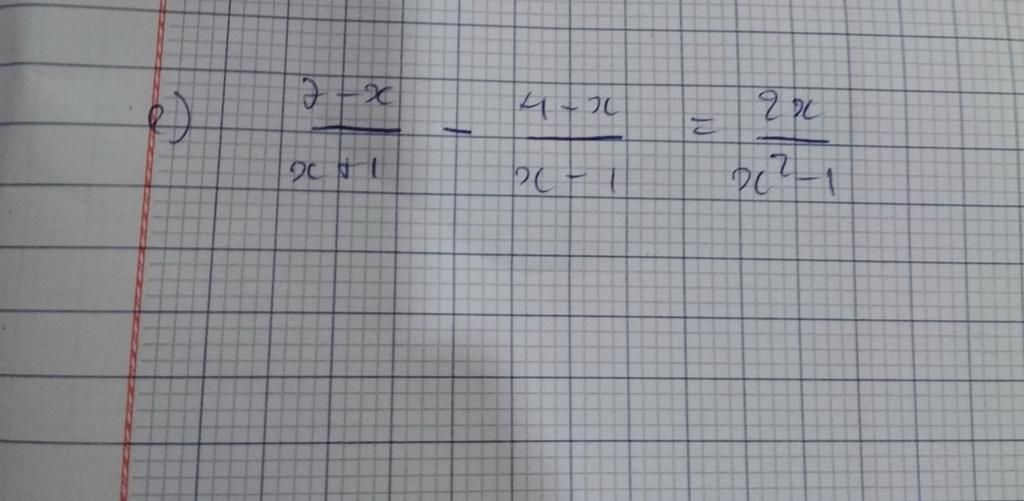 e) (2-x)/(x+1) - (4-x)/(x-1) = 2x/(x²-1)